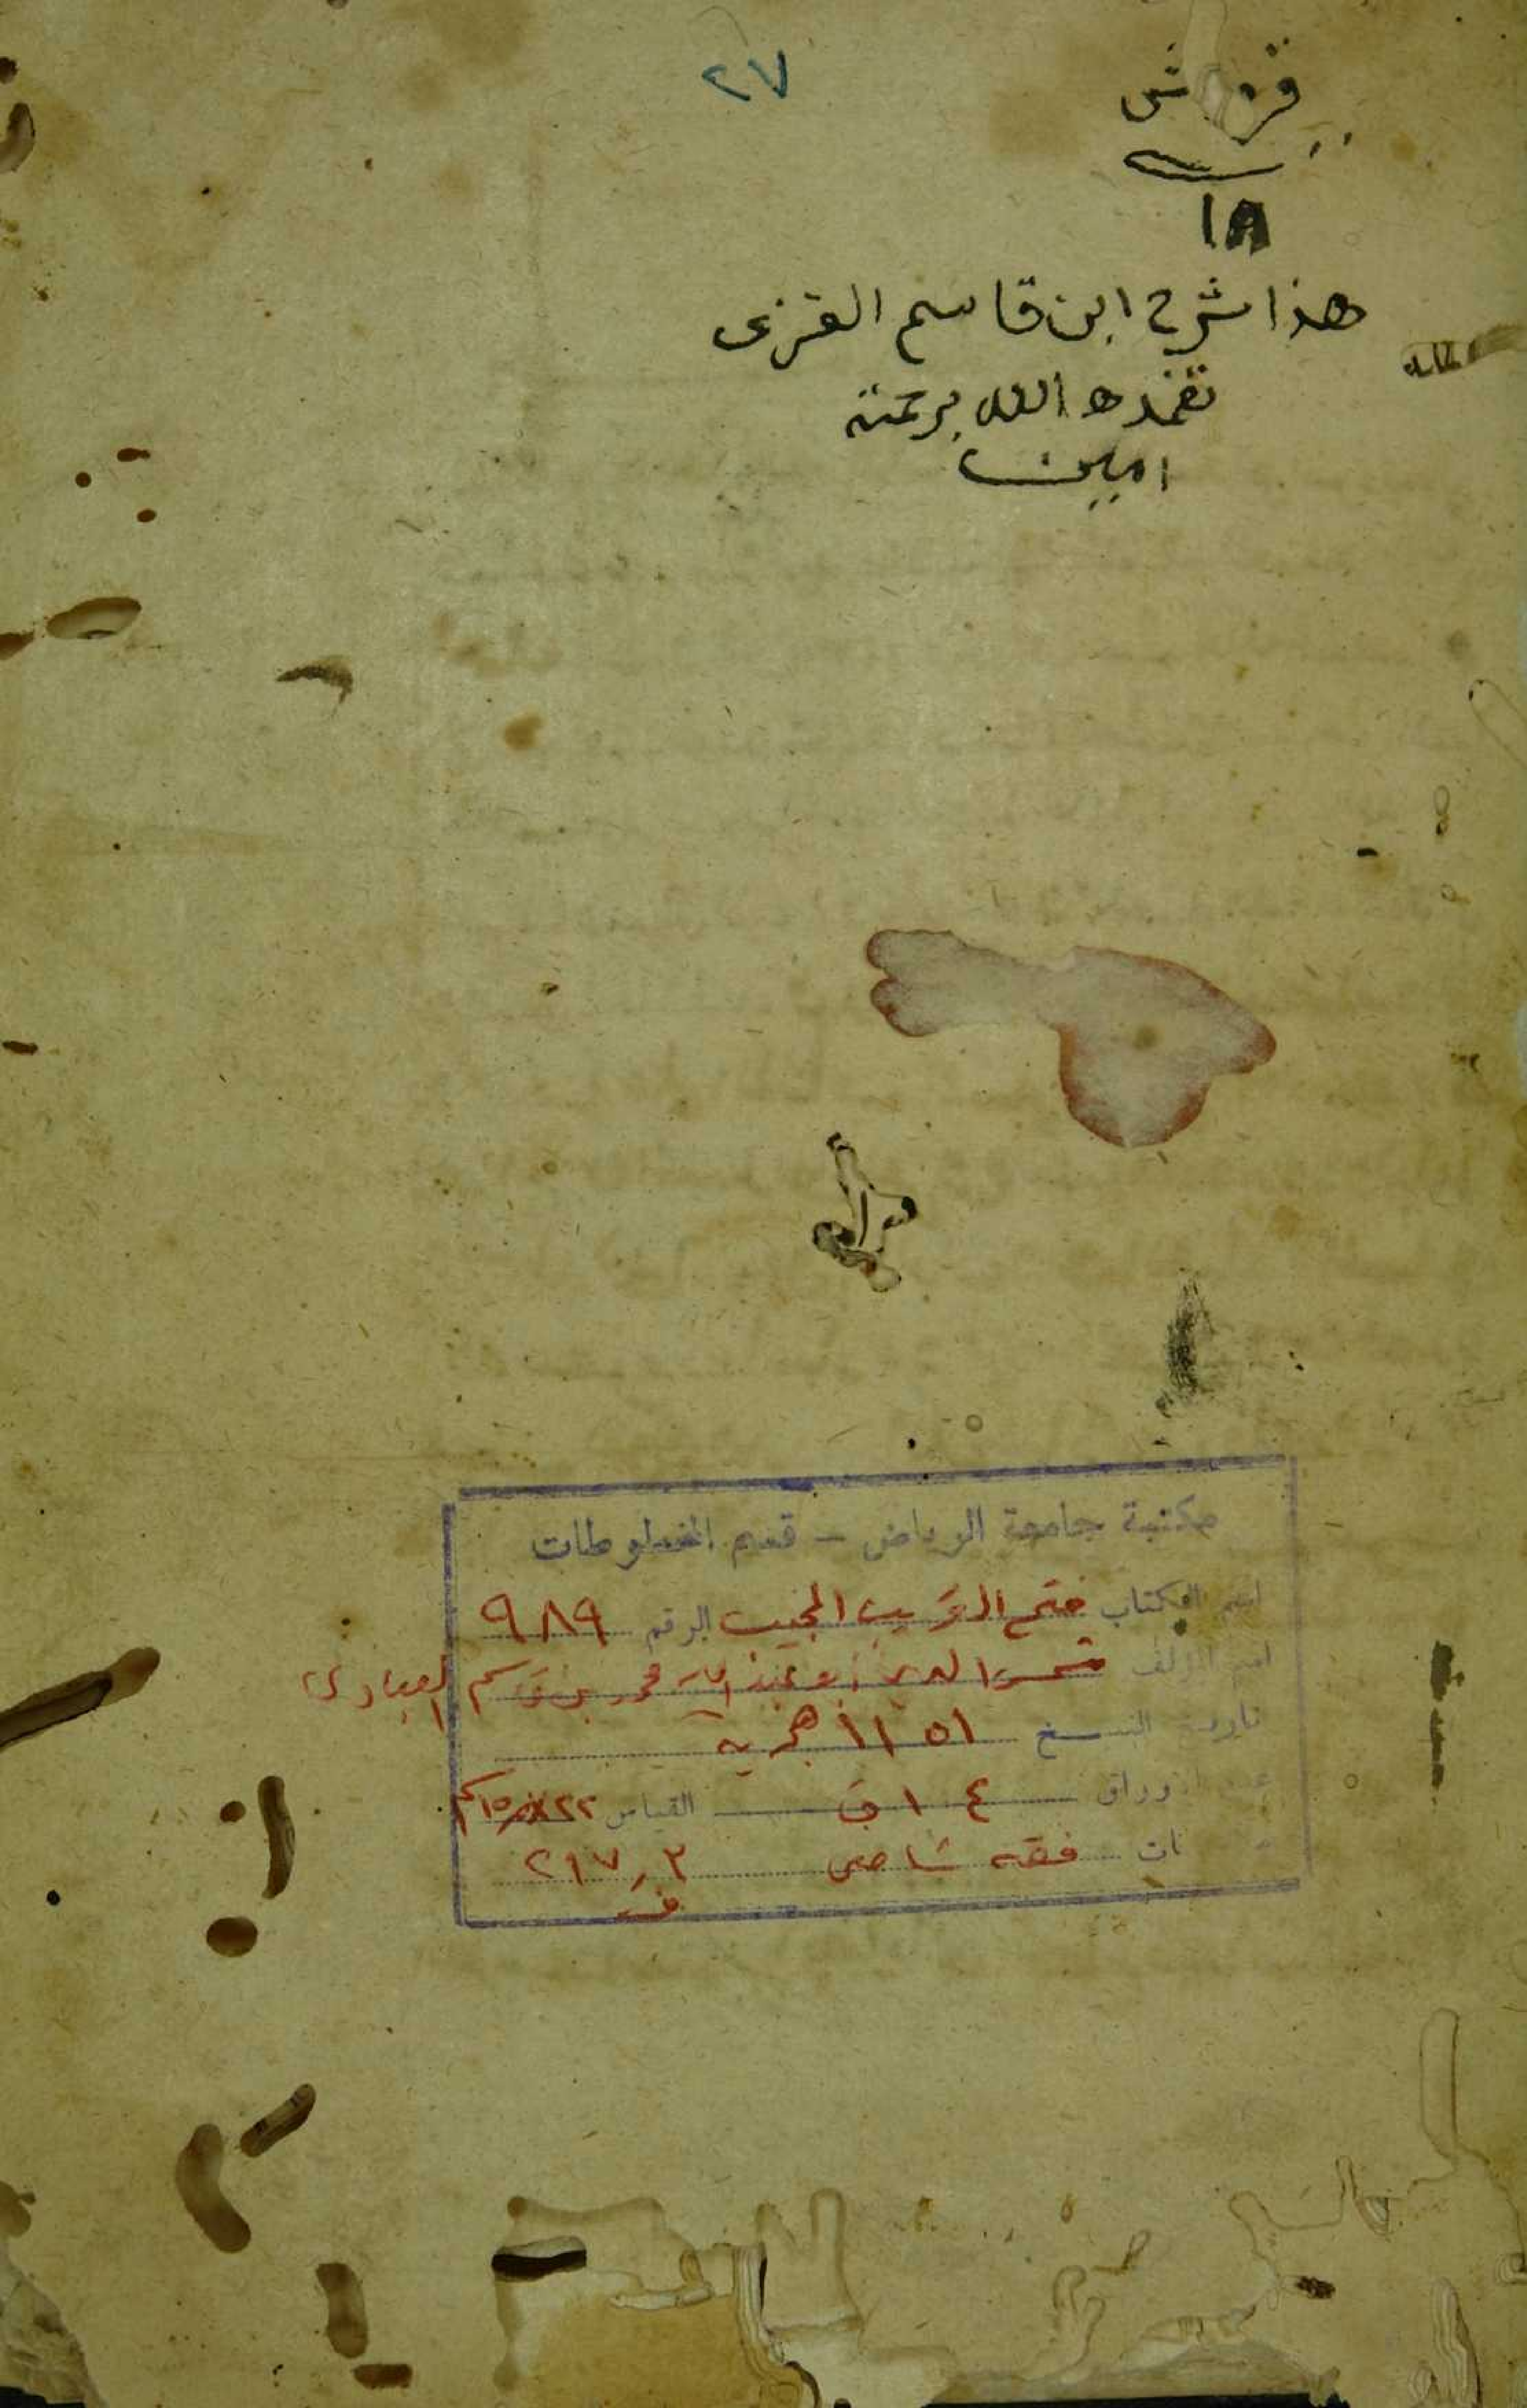 ٢٧
قروش
١٨
هذا شرح ابن قاسم الغزى
تغمده الله برحمته
امين
مكتبة جامعة الرياض - قسم المخطوطات
اسم الكتاب فتح القريب المجيب الرقم ٩٨٩
اسم المؤلف شمس الدين أبو عبد الله محمد بن قاسم العبادى
تاريخ النسخ ١١٥١ هجرية
عدد الأوراق ١٠٤ ق القياس ٢٢×١٥ سم
فقه شافعى ٢١٧٫٣
ف